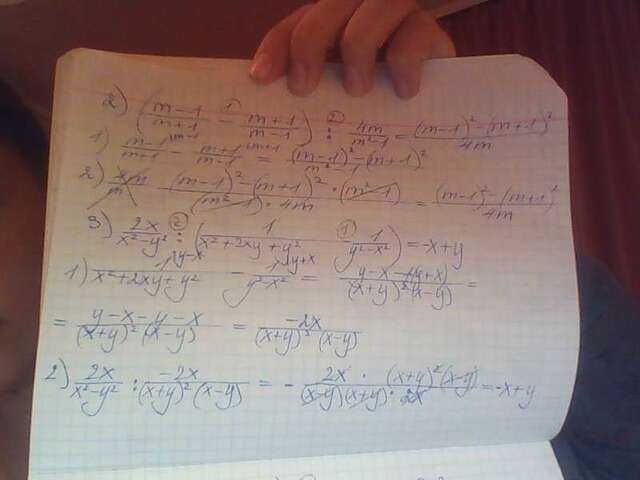 2) ((m-1)/(m+1) - (m+1)/(m-1)) : 4m/(m²-1) = ((m-1)² - (m+1)²)/4m
1) (m-1)/(m+1) - (m+1)/(m-1) = ((m-1)² - (m+1)²)/(m²-1)
2) ((m-1)² - (m+1)²) · (m²-1)/((m²-1) · 4m) = ((m-1)² - (m+1)²)/4m
3) 2x/(x²-y²) : (1/(x²+2xy+y²) - 1/(y²-x²)) = -x+y
1) 1/(x²+2xy+y²) - 1/(y²-x²) = (y-x-(y+x))/((x+y)²(x-y)) =
= (y-x-y-x)/((x+y)²(x-y)) = -2x/((x+y)²(x-y))
2) 2x/(x²-y²) : -2x/((x+y)²(x-y)) = - 2x · (x+y)²(x-y)/((x-y)(x+y) · 2x) = -x+y